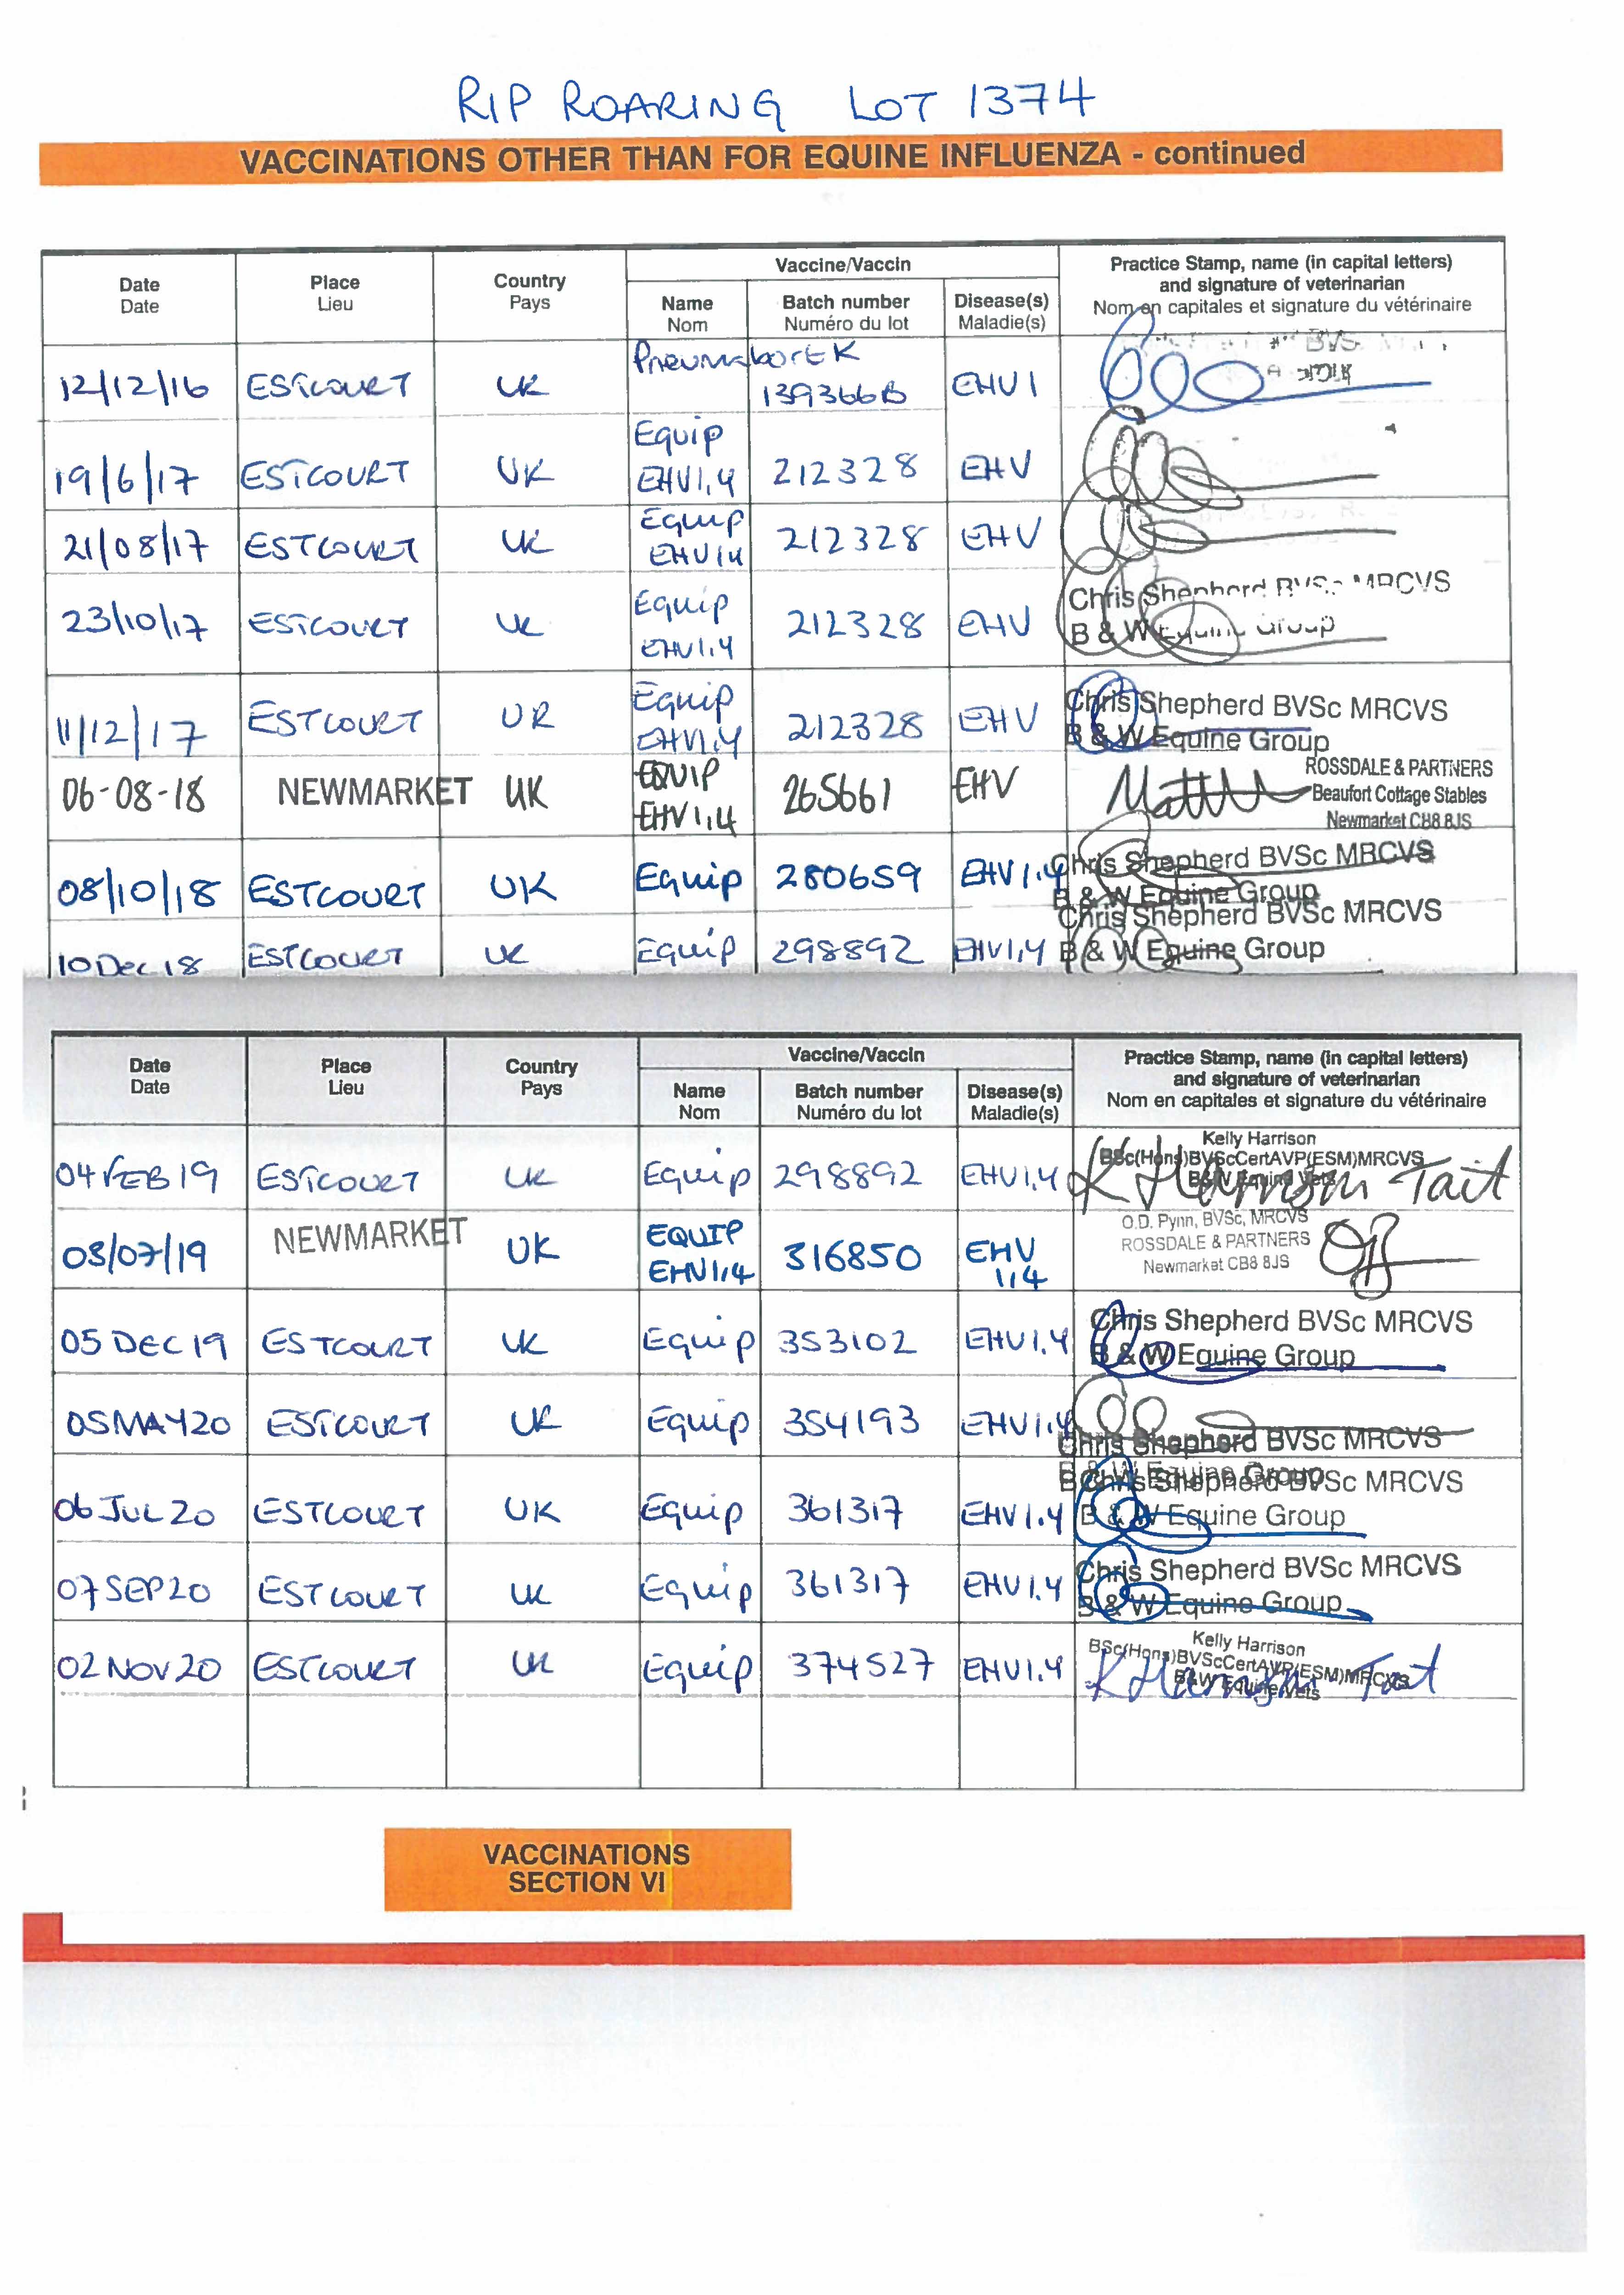 RIP ROARING LOT 1374
VACCINATIONS OTHER THAN FOR EQUINE INFLUENZA - continued
Date Place Country Vaccine/Vaccin Practice Stamp, name (in capital letters)
Date Lieu Pays Name Batch number Disease(s) and signature of veterinarian
Nom Numéro du lot Maladie(s) Nom en capitales et signature du vétérinaire
12/12/16 ESTCOURT UK Pneumabort K 139366B EHV1
19/6/17 ESTCOURT UK Equip EHV1,4 212328 EHV
21/08/17 ESTCOURT UK Equip EHV1,4 212328 EHV
23/10/17 ESTCOURT UK Equip EHV1,4 212328 EHV Chris Shepherd BVSc MRCVS
B & W Equine Group
11/12/17 ESTCOURT UK Equip EHV1,4 212328 EHV Chris Shepherd BVSc MRCVS
B & W Equine Group
06-08-18 NEWMARKET UK EQUIP EHV1,4 265661 EHV ROSSDALE & PARTNERS
Beaufort Cottage Stables
Newmarket CB8 8JS
08/10/18 ESTCOURT UK Equip 280659 EHV1,4 Chris Shepherd BVSc MRCVS
B & W Equine Group
10 Dec 18 ESTCOURT UK Equip 298892 EHV1,4 Chris Shepherd BVSc MRCVS
B & W Equine Group
Date Place Country Vaccine/Vaccin Practice Stamp, name (in capital letters)
Date Lieu Pays Name Batch number Disease(s) and signature of veterinarian
Nom Numéro du lot Maladie(s) Nom en capitales et signature du vétérinaire
04 FEB 19 ESTCOURT UK Equip 298892 EHV1,4 Kelly Harrison
BSc(Hons)BVScCertAVP(ESM)MRCVS
B&W Equine Vets
K Harrison Tait
03/07/19 NEWMARKET UK EQUIP EHV1,4 316850 EHV 1,4 O.D. Pynn, BVSc, MRCVS
ROSSDALE & PARTNERS
Newmarket CB8 8JS
05 DEC 19 ESTCOURT UK Equip 353102 EHV1,4 Chris Shepherd BVSc MRCVS
B & W Equine Group
05 MAY 20 ESTCOURT UK Equip 354193 EHV1,4 Chris Shepherd BVSc MRCVS
B & W Equine Group
06 JUL 20 ESTCOURT UK Equip 361317 EHV1.4 Chris Shepherd BVSc MRCVS
B & W Equine Group
07 SEP 20 ESTCOURT UK Equip 361317 EHV1.4 Chris Shepherd BVSc MRCVS
B & W Equine Group
02 NOV 20 ESTCOURT UK Equip 374527 EHV1.4 Kelly Harrison
BSc(Hons)BVScCertAVP(ESM)MRCVS
B&W Equine Vets
K Harrison Tait
VACCINATIONS
SECTION VI